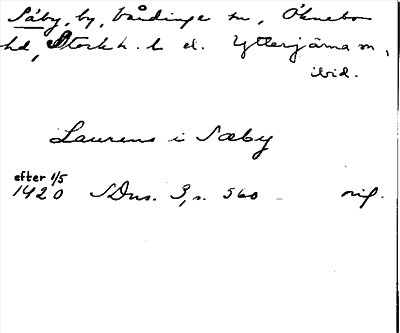 Säby, by, Vårdinge sn, Öknebo
hd, Stockh. l. el. Ytterjärna sn,
ibid.
Laurens i Sæby
efter 1/5
1420 SDns. 3, s. 560 - orig.